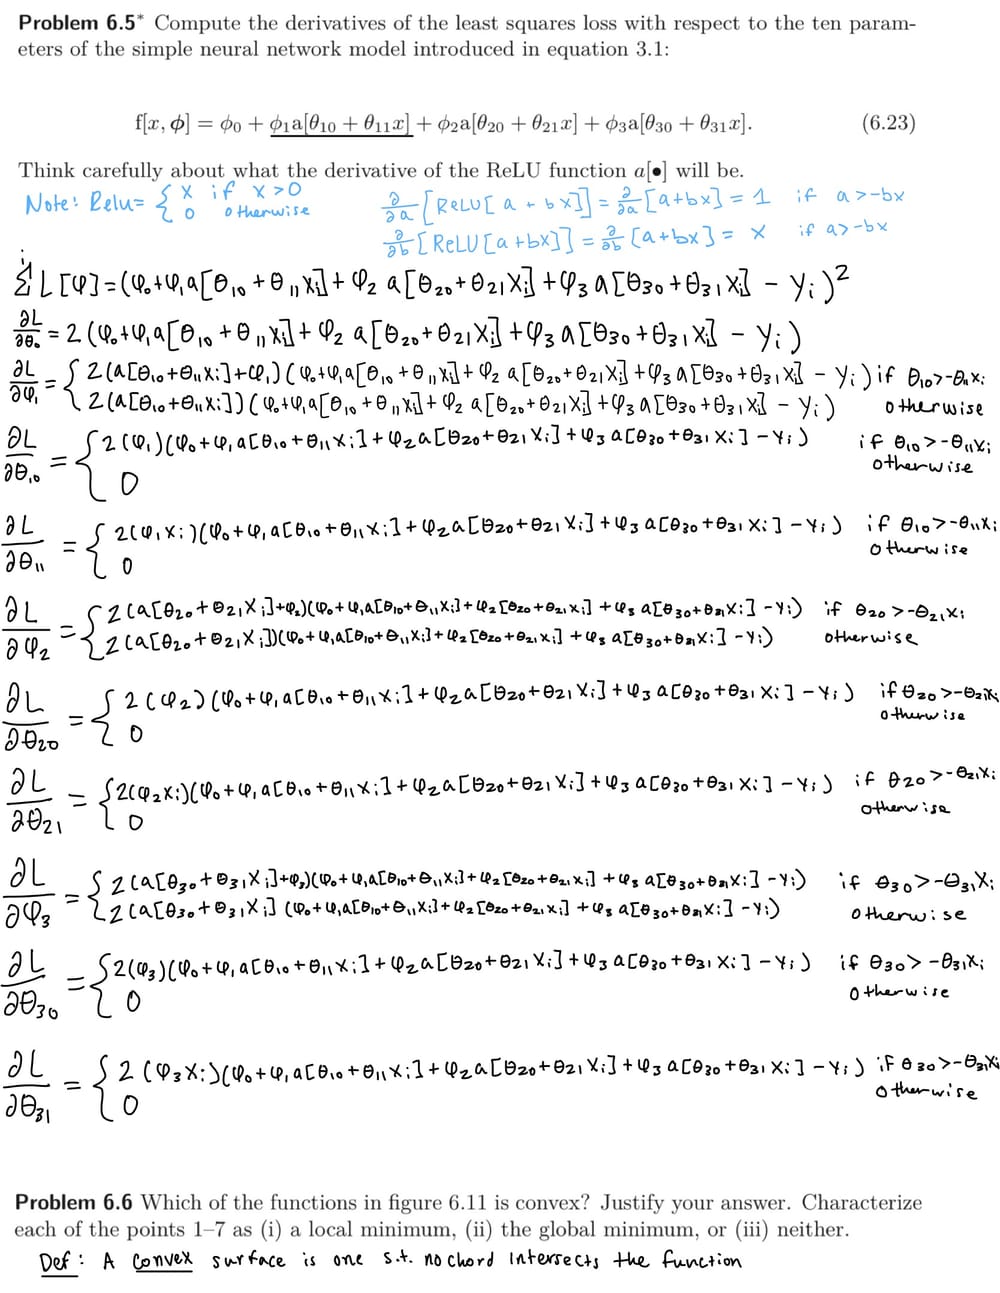 Problem 6.5* Compute the derivatives of the least squares loss with respect to the ten param-
eters of the simple neural network model introduced in equation 3.1:
f[x, ϕ] = ϕ0 + ϕ1a[θ10 + θ11x] + ϕ2a[θ20 + θ21x] + ϕ3a[θ30 + θ31x]. (6.23)
Think carefully about what the derivative of the ReLU function a[•] will be.
Note: Relu = { x if x>0
0 otherwise
∂/∂a [ReLU[a + bx]] = ∂/∂a [a+bx] = 1 if a>-bx
∂/∂b [ReLU[a+bx]] = ∂/∂b [a+bx] = x if a>-bx
Σ L[φ] = (φ0+φ1a[θ10+θ11xi]+φ2 a[θ20+θ21xi]+φ3 a[θ30+θ31xi] - yi)²
∂L/∂θ0 = 2(φ0+φ1a[θ10+θ11xi]+φ2 a[θ20+θ21xi]+φ3 a[θ30+θ31xi] - yi)
∂L/∂φ1 = { 2(a[θ10+θ11xi]+φ1)(φ0+φ1a[θ10+θ11xi]+φ2 a[θ20+θ21xi]+φ3 a[θ30+θ31xi] - yi) if θ10>-θ11xi
2(a[θ10+θ11xi])(φ0+φ1a[θ10+θ11xi]+φ2 a[θ20+θ21xi]+φ3 a[θ30+θ31xi] - yi) otherwise
∂L/∂θ10 = { 2(φ1)(φ0+φ1a[θ10+θ11xi]+φ2a[θ20+θ21xi]+φ3a[θ30+θ31xi]-yi) if θ10>-θ11xi
0 otherwise
∂L/∂θ11 = { 2(φ1xi)(φ0+φ1a[θ10+θ11xi]+φ2a[θ20+θ21xi]+φ3a[θ30+θ31xi]-yi) if θ10>-θ11xi
0 otherwise
∂L/∂φ2 = { 2(a[θ20+θ21xi]+φ2)(φ0+φ1a[θ10+θ11xi]+φ2[θ20+θ21xi]+φ3 a[θ30+θ31xi]-yi) if θ20>-θ21xi
2(a[θ20+θ21xi])(φ0+φ1a[θ10+θ11xi]+φ2[θ20+θ21xi]+φ3 a[θ30+θ31xi]-yi) otherwise
∂L/∂θ20 = { 2(φ2)(φ0+φ1a[θ10+θ11xi]+φ2a[θ20+θ21xi]+φ3a[θ30+θ31xi]-yi) if θ20>-θ21xi
0 otherwise
∂L/∂θ21 = { 2(φ2xi)(φ0+φ1a[θ10+θ11xi]+φ2a[θ20+θ21xi]+φ3a[θ30+θ31xi]-yi) if θ20>-θ21xi
0 otherwise
∂L/∂φ3 = { 2(a[θ30+θ31xi]+φ3)(φ0+φ1a[θ10+θ11xi]+φ2[θ20+θ21xi]+φ3 a[θ30+θ31xi]-yi) if θ30>-θ31xi
2(a[θ30+θ31xi] (φ0+φ1a[θ10+θ11xi]+φ2[θ20+θ21xi]+φ3 a[θ30+θ31xi]-yi) otherwise
∂L/∂θ30 = { 2(φ3)(φ0+φ1a[θ10+θ11xi]+φ2a[θ20+θ21xi]+φ3a[θ30+θ31xi]-yi) if θ30>-θ31xi
0 otherwise
∂L/∂θ31 = { 2(φ3xi)(φ0+φ1a[θ10+θ11xi]+φ2a[θ20+θ21xi]+φ3a[θ30+θ31xi]-yi) if θ30>-θ31xi
0 otherwise
Problem 6.6 Which of the functions in figure 6.11 is convex? Justify your answer. Characterize
each of the points 1–7 as (i) a local minimum, (ii) the global minimum, or (iii) neither.
Def: A convex surface is one s.t. no chord intersects the function